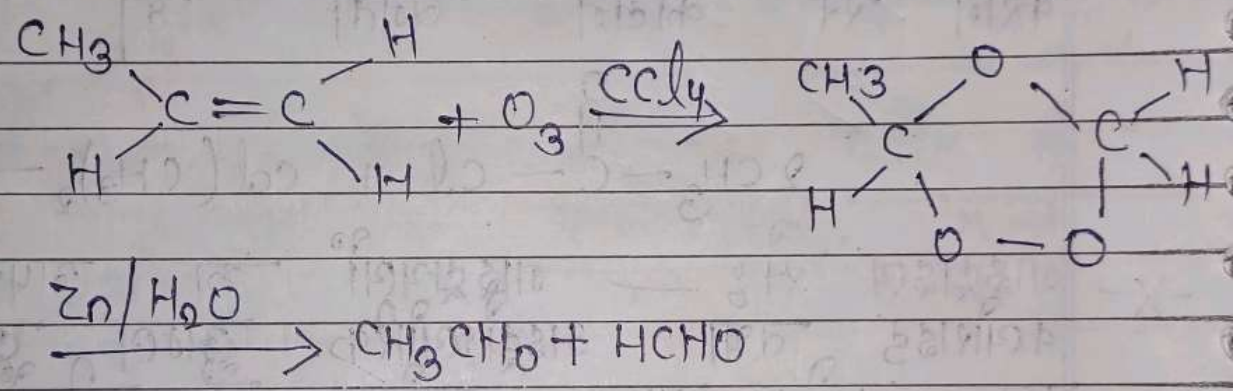 CH3 H
C = C + O3 CCl4 → CH3 C O C H
H H H O — O H
Zn/H2O → CH3CHO + HCHO